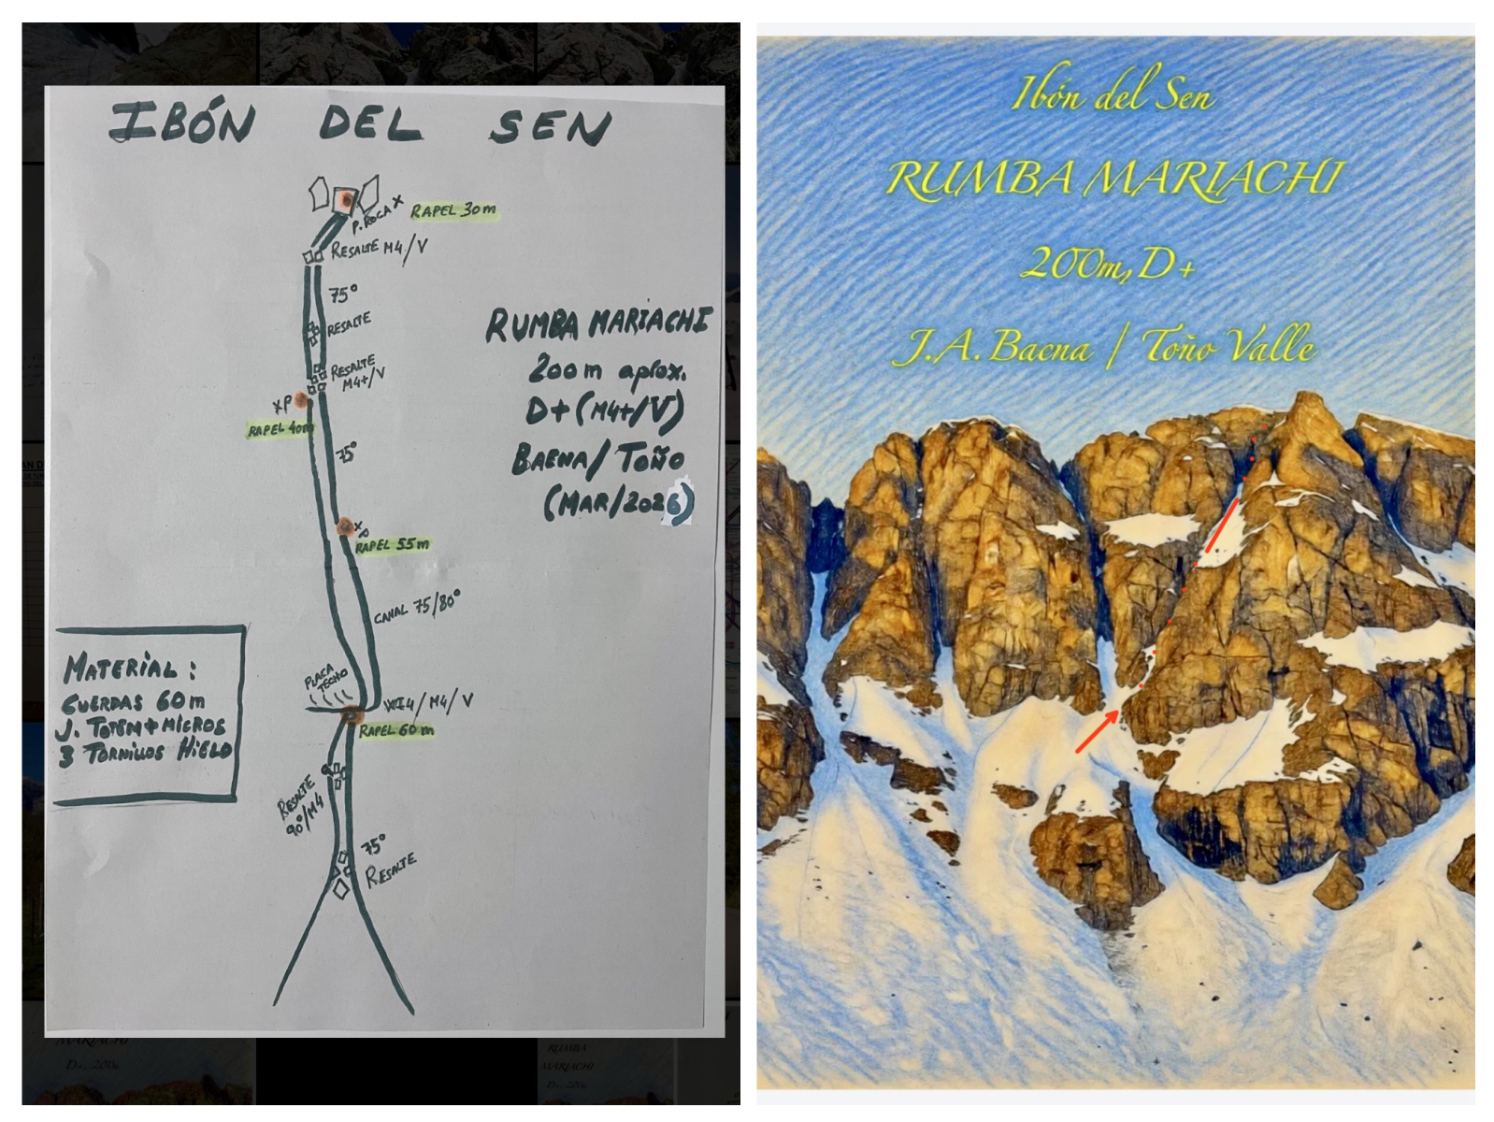 IBÓN DEL SEN
P. ROCA X
RAPEL 30m
RESALTE M4/V
75°
RESALTE
RESALTE
M4+/V
XP
RAPEL 40m
75°
RAPEL 55m
CANAL 75/80°
PLACA
TECHO
WI4/M4/V
RAPEL 60m
RESALTE
90°/M4
75°
RESALTE
RUMBA MARIACHI
200m aprox.
D+(M4+/V)
BAENA/TOÑO
(MAR/2026)
MATERIAL:
CUERDAS 60m
J. TOTEM+MICROS
3 TORNILLOS HIELO
MARIACHI
D+, 200m
RUMBA
MARIACHI
Ibón del Sen
RUMBA MARIACHI
200m, D+
J.A. Baena / Toño Valle